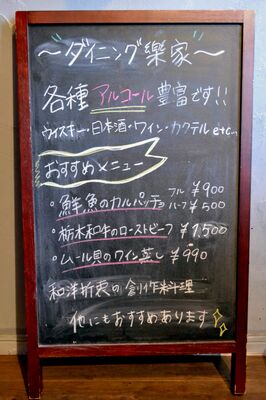 〜ダイニング樂家〜
各種アルコール豊富です!!
ウィスキー・日本酒・ワイン・カクテル etc...
おすすめメニュー
・鮮魚のカルパッチョ フル ¥900
ハーフ ¥500
・栃木和牛のローストビーフ ¥1,500
・ムール貝のワイン蒸し ¥990
和洋折衷の創作料理
他にもおすすめあります